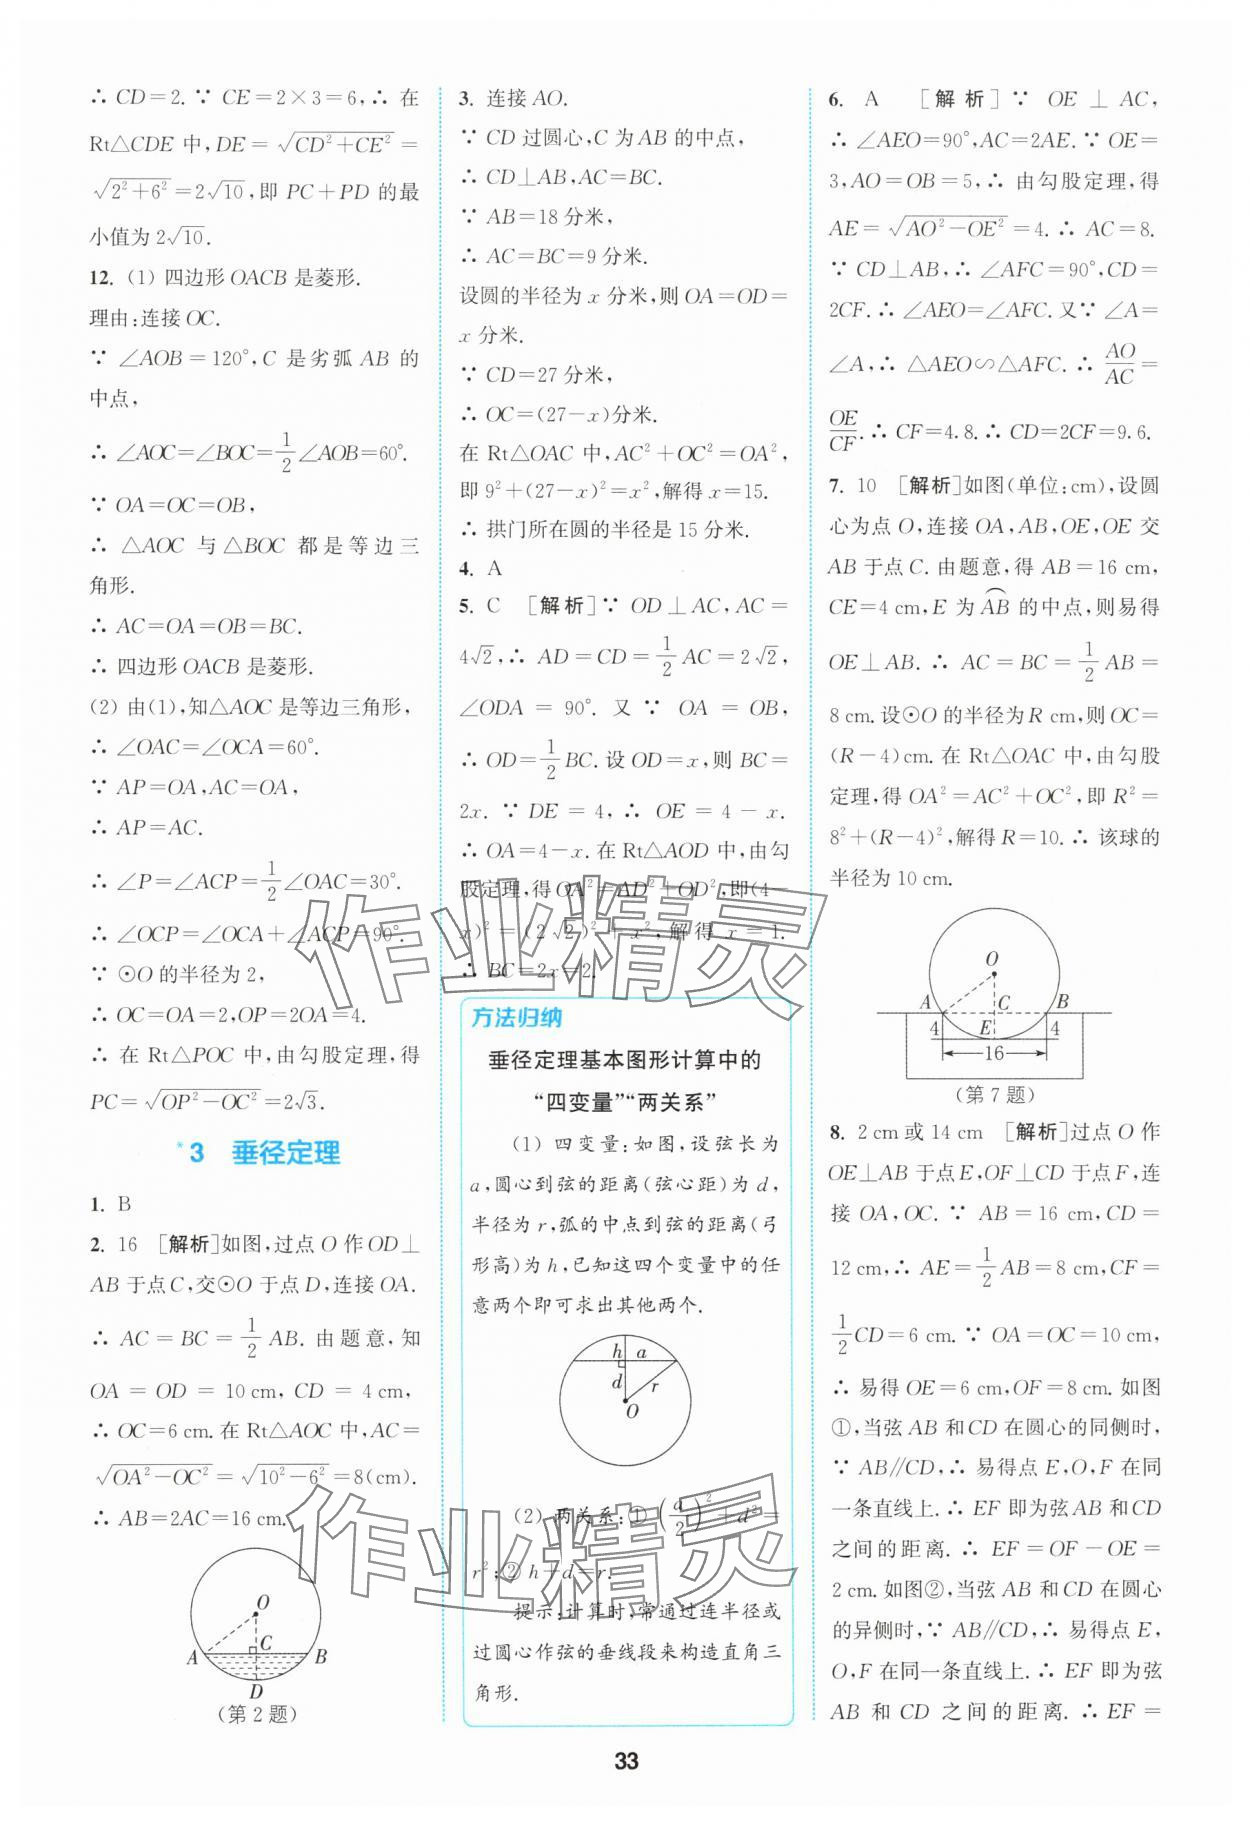 ∴ CD=2. ∵ CE=2×3=6,∴ 在
Rt△CDE 中,DE=√(CD²+CE²)=
√(2²+6²)=2√10,即 PC+PD 的最
小值为 2√10.
12. (1) 四边形 OACB 是菱形.
理由:连接 OC.
∵ ∠AOB=120°,C 是劣弧 AB 的
中点,
∴ ∠AOC=∠BOC=1/2∠AOB=60°.
∵ OA=OC=OB,
∴ △AOC 与△BOC 都是等边三
角形.
∴ AC=OA=OB=BC.
∴ 四边形 OACB 是菱形.
(2) 由(1),知△AOC 是等边三角形,
∴ ∠OAC=∠OCA=60°.
∵ AP=OA,AC=OA,
∴ AP=AC.
∴ ∠P=∠ACP=1/2∠OAC=30°.
∴ ∠OCP=∠OCA+∠ACP=90°.
∵ ⊙O 的半径为 2,
∴ OC=OA=2,OP=2OA=4.
∴ 在 Rt△POC 中,由勾股定理,得
PC=√(OP²-OC²)=2√3.
*3 垂径定理
1. B
2. 16 [解析]如图,过点 O 作 OD⊥
AB 于点 C,交⊙O 于点 D,连接 OA.
∴ AC=BC=1/2 AB. 由题意,知
OA=OD=10 cm,CD=4 cm,
∴ OC=6 cm. 在 Rt△AOC 中,AC=
√(OA²-OC²)=√(10²-6²)=8(cm).
∴ AB=2AC=16 cm.
O
A C B
D
(第 2 题)
3. 连接 AO.
∵ CD 过圆心,C 为 AB 的中点,
∴ CD⊥AB,AC=BC.
∵ AB=18 分米,
∴ AC=BC=9 分米.
设圆的半径为 x 分米,则 OA=OD=
x 分米.
∵ CD=27 分米,
∴ OC=(27-x)分米.
在 Rt△OAC 中,AC²+OC²=OA²,
即 9²+(27-x)²=x²,解得 x=15.
∴ 拱门所在圆的半径是 15 分米.
4. A
5. C [解析]∵ OD⊥AC,AC=
4√2,∴ AD=CD=1/2 AC=2√2,
∠ODA=90°. 又∵ OA=OB,
∴ OD=1/2 BC. 设 OD=x,则 BC=
2x. ∵ DE=4,∴ OE=4-x.
∴ OA=4-x. 在 Rt△AOD 中,由勾
股定理,得 OA²=AD²+OD²,即(4-
x)²=(2√2)²+x²,解得 x=1.
∴ BC=2x=2.
方法归纳
垂径定理基本图形计算中的
“四变量”“两关系”
(1) 四变量:如图,设弦长为
a,圆心到弦的距离(弦心距)为 d,
半径为 r,弧的中点到弦的距离(弓
形高)为 h,已知这四个变量中的任
意两个即可求出其他两个.
h a
d r
O
(2) 两关系:① (a/2)²+d²=
r²;② h+d=r.
提示:计算时,常通过连半径或
过圆心作弦的垂线段来构造直角三
角形.
6. A [解析]∵ OE⊥AC,
∴ ∠AEO=90°,AC=2AE. ∵ OE=
3,AO=OB=5,∴ 由勾股定理,得
AE=√(AO²-OE²)=4. ∴ AC=8.
∵ CD⊥AB,∴ ∠AFC=90°,CD=
2CF. ∴ ∠AEO=∠AFC. 又∵ ∠A=
∠A,∴ △AEO∽△AFC. ∴ AO/AC=
OE/CF. ∴ CF=4.8. ∴ CD=2CF=9.6.
7. 10 [解析]如图(单位:cm),设圆
心为点 O,连接 OA,AB,OE,OE 交
AB 于点 C. 由题意,得 AB=16 cm,
CE=4 cm,E 为 ⌒AB 的中点,则易得
OE⊥AB. ∴ AC=BC=1/2 AB=
8 cm. 设⊙O 的半径为 R cm,则 OC=
(R-4)cm. 在 Rt△OAC 中,由勾股
定理,得 OA²=AC²+OC²,即 R²=
8²+(R-4)²,解得 R=10. ∴ 该球的
半径为 10 cm.
O
A C B
4 E 4
16
(第 7 题)
8. 2 cm 或 14 cm [解析]过点 O 作
OE⊥AB 于点 E,OF⊥CD 于点 F,连
接 OA,OC. ∵ AB=16 cm,CD=
12 cm,∴ AE=1/2 AB=8 cm,CF=
1/2 CD=6 cm. ∵ OA=OC=10 cm,
∴ 易得 OE=6 cm,OF=8 cm. 如图
①,当弦 AB 和 CD 在圆心的同侧时,
∵ AB∥CD,∴ 易得点 E,O,F 在同
一条直线上. ∴ EF 即为弦 AB 和 CD
之间的距离. ∴ EF=OF-OE=
2 cm. 如图②,当弦 AB 和 CD 在圆心
的异侧时,∵ AB∥CD,∴ 易得点 E,
O,F 在同一条直线上. ∴ EF 即为弦
AB 和 CD 之间的距离. ∴ EF=
33
作业精灵
作业精灵